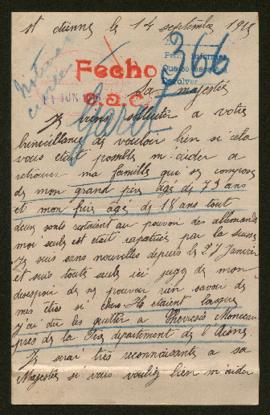 St etienne le 14 septembre 1915
366
Fecho
S.a.c.
Sa majestés
Je viens solliciter a votre
bienveillance de vouloir bien si cela
vous était possible m'aider a
retrouver ma famille qui se compose
de mon grand père âgé de 73 ans
et mon frère âgé de 18 ans tout
deux sont restaient au pouvoir des allemands
moi seuls est était rapatriés par la suisse
Je suis sans nouvelles depuis le 27 Janvier
et suis toute seule ici juger de mon
desespoir de ne pouvoir rien savoir de
mes êtres si chers Ils etaient lorsque
j'ai du les quitter a Monceau
près de la département de l'Aisne
Je serai très reconnaissante a sa
Majestés si vous vouliez bien m'aider